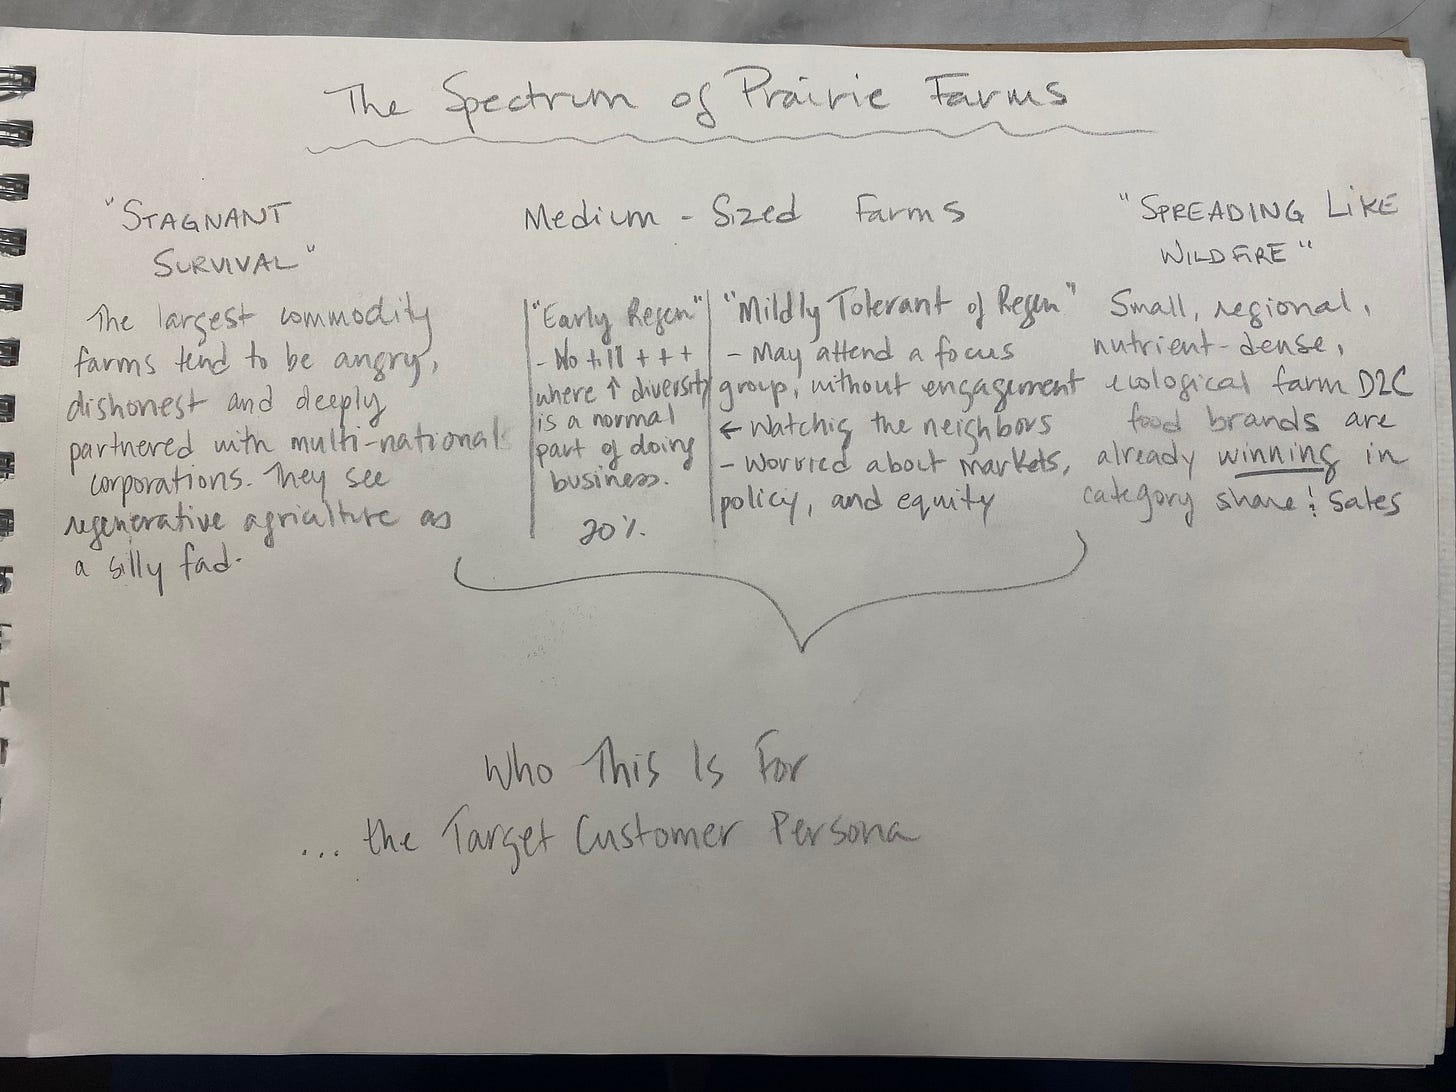 The Spectrum of Prairie Farms
"STAGNANT
SURVIVAL"
The largest commodity
farms tend to be angry,
dishonest and deeply
partnered with multi-national
corporations. They see
regenerative agriculture as
a silly fad.
Medium-Sized Farms
"Early Regen"
- No till +++
where ↑ diversity
is a normal
part of doing
business.
20%
"Mildly Tolerant of Regen"
- May attend a focus
group, without engagement
← Watchig the neighbors
- Worried about markets,
policy, and equity
"SPREADING LIKE
WILDFIRE"
Small, regional,
nutrient-dense,
ecological farm D2C
food brands are
already winning in
category share & Sales
Who This Is For
... the Target Customer Persona